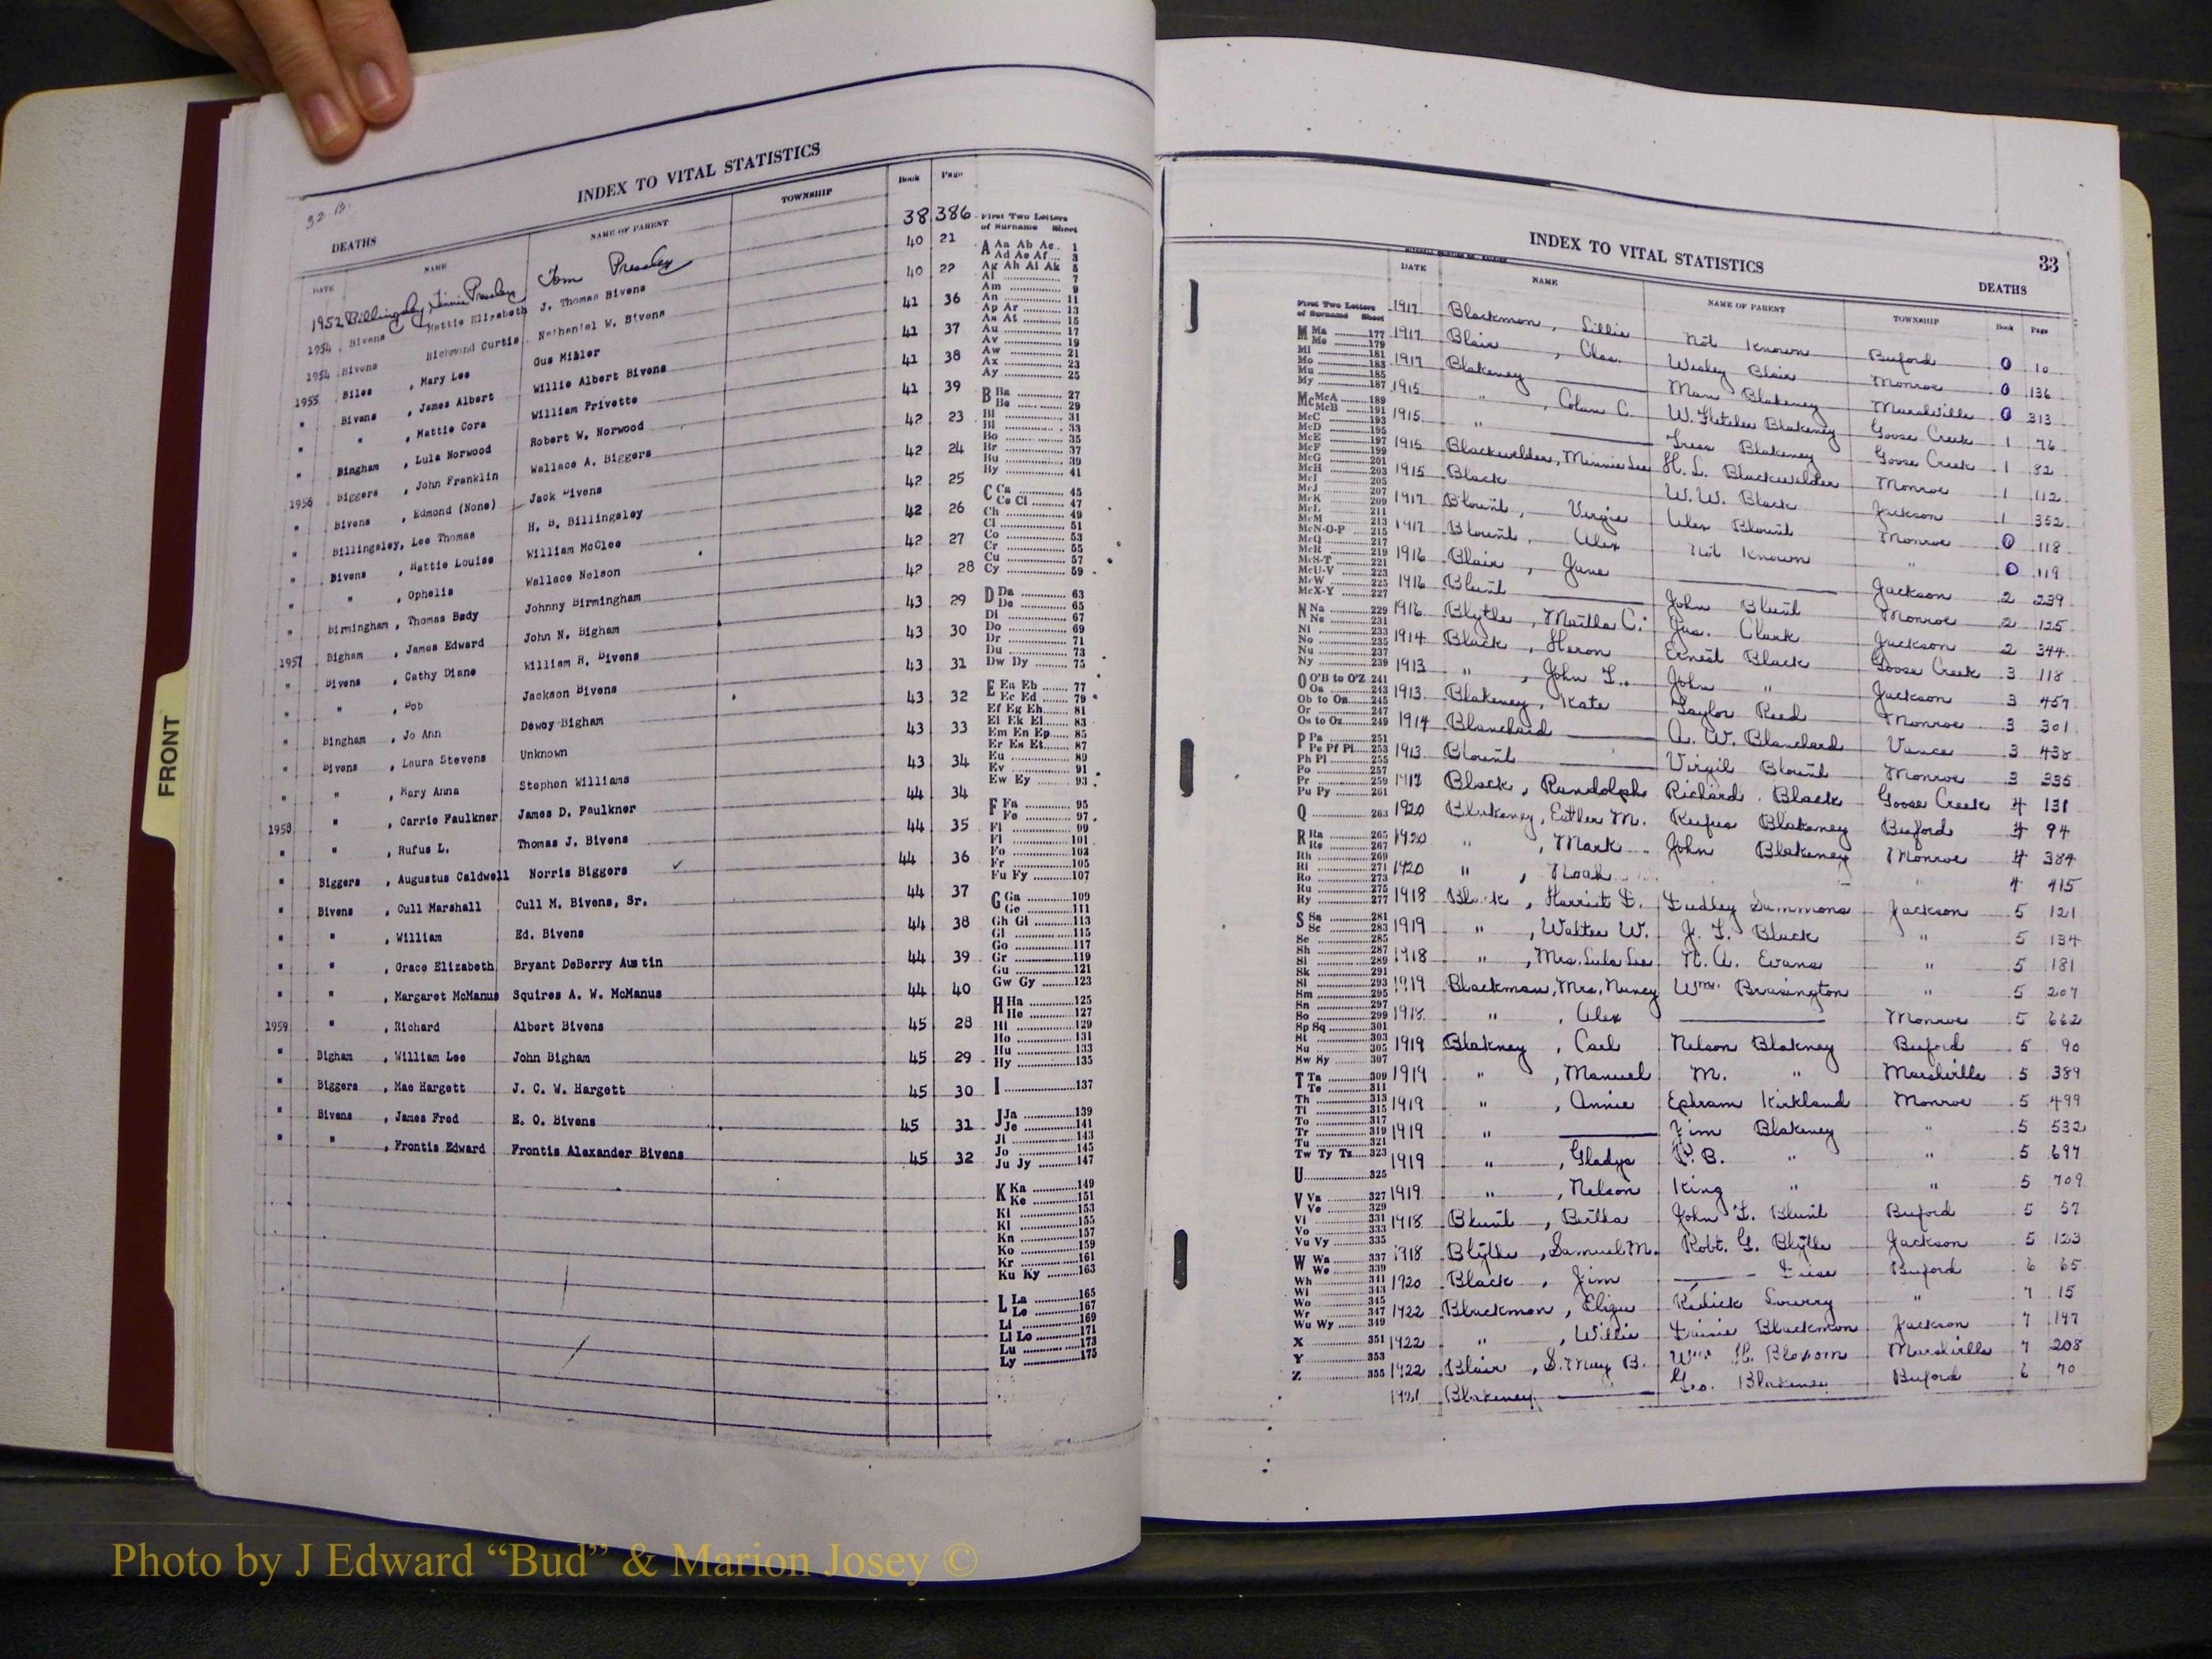 32 B.
INDEX TO VITAL STATISTICS
DEATHS
DATE NAME NAME OF PARENT TOWNSHIP Book Page
1952 Billingsley, Jinnie Presley Tom Pressley 38 386
1954 Bivens Mattie Elizabeth J. Thomas Bivens 40 21
1954 Bivens Richmond Curtis Nathaniel W. Bivens 40 22
1955 Biles , Mary Lee Gus Miller 41 36
" Bivens , James Albert Willie Albert Bivens 41 37
" " , Mattie Cora William Privette 41 38
" Bingham , Lula Norwood Robert W. Norwood 41 39
1956 Biggers , John Franklin Wallace A. Biggers 42 23
" Bivens , Edmond (None) Jack Bivens 42 24
" Billingsley, Lee Thomas H. B. Billingsley 42 25
" Bivens , Hattie Louise William McClee 42 26
" " , Ophelia Wallace Nelson 42 27
" Birmingham , Thomas Body Johnny Birmingham 42 28
1957 Bigham , James Edward John N. Bigham 43 29
" Bivens , Cathy Diane William R. Bivens 43 30
" " , Bob Jackson Bivens 43 31
" Bingham , Jo Ann Dewey Bigham 43 32
" Bivens , Laura Stevens Unknown 43 33
" " , Mary Anna Stephen Williams 43 34
1958 " , Carrie Faulkner James D. Faulkner 44 34
" " , Rufus L. Thomas J. Bivens 44 35
" Biggers , Augustus Caldwell Norris Biggers ✓ 44 36
" Bivens , Cull Marshall Cull M. Bivens, Sr. 44 37
" " , William Ed. Bivens 44 38
" " , Grace Elizabeth Bryant DeBerry Austin 44 39
" " , Margaret McManus Squires A. W. McManus 44 40
1959 " , Richard Albert Bivens 45 28
" Bigham , William Lee John Bigham 45 29
" Biggers , Mae Hargett J. C. W. Hargett 45 30
" Bivens , James Fred E. O. Bivens 45 31
" " , Frontis Edward Frontis Alexander Bivens 45 32
First Two Letters
of Surname Sheet
A Aa Ab Ac 1
Ad Ae Af 3
Ag Ah Ai Ak 5
Al 7
Am 9
An 11
Ap Ar 13
As At 15
Au 17
Av 19
Aw 21
Ax 23
Ay 25
B Ba 27
Be 29
Bi 31
Bl 33
Bo 35
Br 37
Bu 39
By 41
C Ca 45
Ce Ci 47
Ch 49
Cl 51
Co 53
Cr 55
Cu 57
Cy 59
D Da 63
De 65
Di 67
Do 69
Dr 71
Du 73
Dw Dy 75
E Ea Eb 77
Ec Ed 79
Ef Eg Eh 81
Ei Ek El 83
Em En Ep 85
Er Es Et 87
Eu 89
Ev 91
Ew Ey 93
F Fa 95
Fe 97
Fi 99
Fl 101
Fo 103
Fr 105
Fu Fy 107
G Ga 109
Ge 111
Gh Gi 113
Gl 115
Go 117
Gr 119
Gu 121
Gw Gy 123
H Ha 125
He 127
Hi 129
Ho 131
Hu 133
Hy 135
I 137
J Ja 139
Je 141
Ji 143
Jo 145
Ju Jy 147
K Ka 149
Ke 151
Ki 153
Kl 155
Kn 157
Ko 159
Kr 161
Ku Ky 163
L La 165
Le 167
Li 169
Ll Lo 171
Lu 173
Ly 175
FRONT
INDEX TO VITAL STATISTICS 33
DEATHS
DATE NAME NAME OF PARENT TOWNSHIP Book Page
First Two Letters
of Surname Sheet
M Ma 177
Me 179
Mi 181
Mo 183
Mu 185
My 187
Mc McA 189
McB 191
McC 193
McD 195
McE 197
McF 199
McG 201
McH 203
McI 205
McJ 207
McK 209
McL 211
McM 213
McN-O-P 215
McQ 217
McR 219
McS-T 221
McU-V 223
McW 225
McX-Y 227
N Na 229
Ne 231
Ni 233
No 235
Nu 237
Ny 239
O O'B to O'Z 241
Oa 243
Ob to On 245
Or 247
Os to Oz 249
P Pa 251
Pe Pf Pi 253
Ph Pl 255
Po 257
Pr 259
Pu Py 261
Q 263
R Ra 265
Re 267
Rh 269
Ri 271
Ro 273
Ru 275
Ry 277
S Sa 281
Sc 283
Se 285
Sh 287
Si 289
Sk 291
Sl 293
Sm 295
Sn 297
So 299
Sp Sq 301
St 303
Su 305
Sw Sy 307
T Ta 309
Te 311
Th 313
Ti 315
To 317
Tr 319
Tu 321
Tw Ty Tz 323
U 325
V Va 327
Ve 329
Vi 331
Vo 333
Vu Vy 335
W Wa 337
We 339
Wh 341
Wi 343
Wo 345
Wr 347
Wu Wy 349
X 351
Y 353
Z 355
1917 Blackmon, Lillie Not Known Buford 0 10
1917 Blair , Chas. Wesley Blair Monroe 0 136
1917 Blakeney Mam Blakeney Marshville 0 313
1915 " , Colan C. W. Fletcher Blakeney Goose Creek 1 76
1915 " Tress Blakeney Goose Creek 1 82
1915 Blackwelder, Minnie Lee H. L. Blackwelder Monroe 1 112
1915 Black W. W. Black Jackson 1 352
1917 Blount, Virgie Alex Blount Monroe 0 118
1917 Blount, Alex Not Known " 0 119
1916 Blair , Jane Jackson 2 239
1916 Blunt John Blunt Monroe 2 125
1916 Blythe , Martha C. Jas. Clark Jackson 2 344
1914 Black , Heron Ernest Black Goose Creek 3 118
1913 " , John L. John " Jackson 3 457
1913 Blakeney, Kate Taylor Reed Monroe 3 301
1914 Blanchard A. W. Blanchard Vance 3 438
1913 Blount Virgil Blount Monroe 3 335
1917 Black , Randolph Richard Black Goose Creek 4 131
1920 Blakeney, Esther M. Rufus Blakeney Buford 4 94
1920 " , Mark John Blakeney Monroe 4 384
1920 " , Noah 4 415
1918 Black , Harriet L. Dudley Simmons Jackson 5 121
1919 " , Walter W. J. L. Black " 5 134
1918 " , Mrs. Lula Lee N. A. Evans " 5 181
1919 Blackmon, Mrs. Nancy Wm. Brasington " 5 207
1918 " , Alex Monroe 5 662
1919 Blakney , Carl Nelson Blakney Buford 5 90
1919 " , Manuel M. " Marshville 5 389
1919 " , Annie Ephram Kirkland Monroe 5 499
1919 " Jim Blakeney " 5 532
1919 " , Gladys P. B. " " 5 697
1919 " , Nelson King " " 5 709
1918 Blunt , Bertha John L. Blunt Buford 5 57
1918 Blythe , Samuel M. Robt. G. Blythe Jackson 5 123
1920 Black , Jim Buford 6 65
1922 Blackmon , Redick Lowery " 7 15
1922 " , Willie Blackmon Jackson 7 147
1922 Blair , S. May B. Wm H. Blossom Marshville 7 208
1921 Blakeney Geo. Blakeney Buford 6 70
Photo by J Edward “Bud” & Marion Josey ©